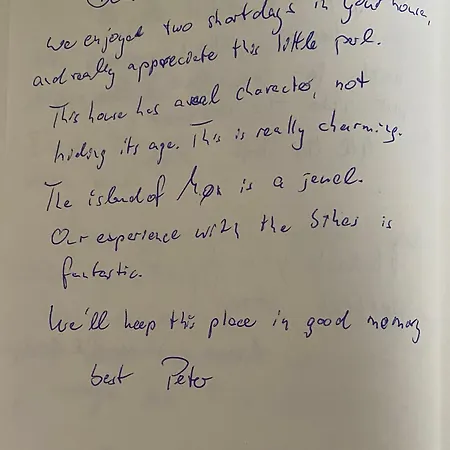 we enjoyed two short days in your house,
and really appreciate this little perl.
This house has a real character, not
hiding its age. This is really charming.
The island of Møn is a jewel.
Our experience with the is
fantastic.
We'll keep this place in good memory
best Peter